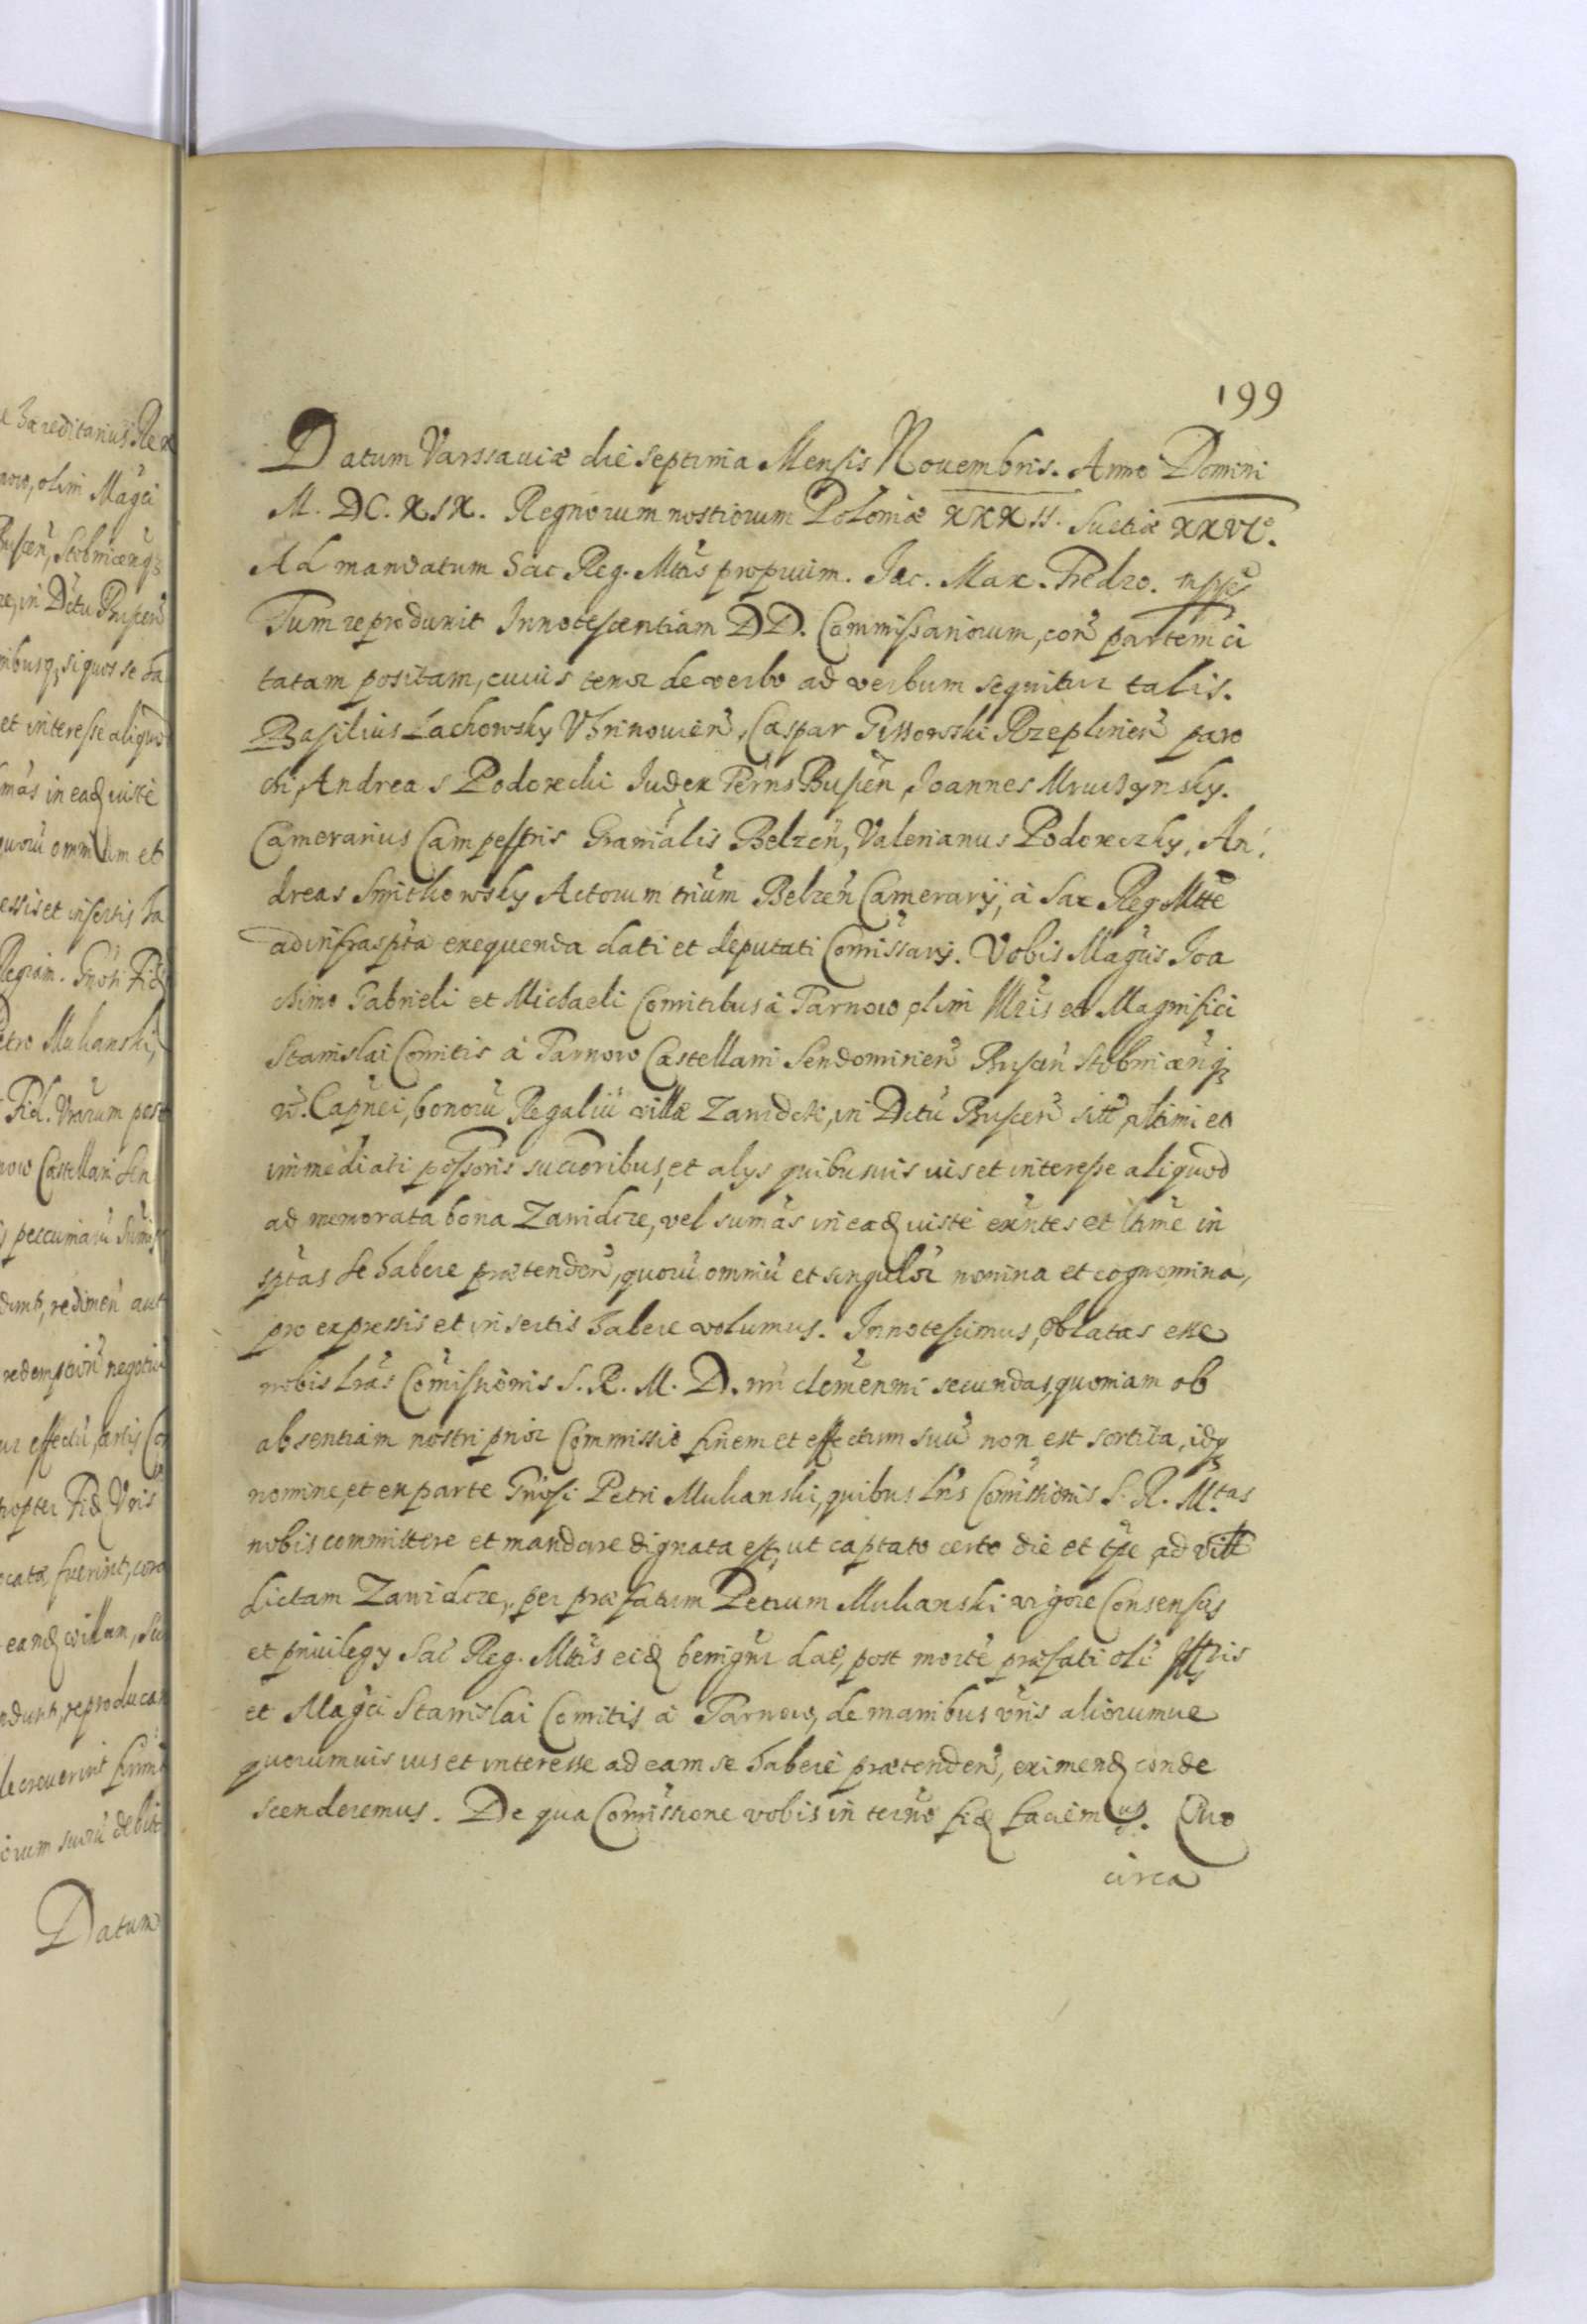 199
Datum Varssauiæ die septima Mensis Nouembris. Anno Domini
M. DC. XIX. Regnorum nostrorum Poloniæ XXXII. Suetiæ XXVIº.
Ad mandatum Sac Reg. Mttis proprium. Jac. Max. Fredro.
Tum reproduxit Innotescentiam DD. Commissariorum, cor̃ partem ci
tatam positam, cuius tenor de verbo ad verbum sequitur talis.
Basilius Lachowsky Vhrinowien̄, Caspar Gissowski Rzeplinen̄ paro
chi, Andreas Podorecki Iudex Terrñs Buscen̄, Joannes Mruczynsky.
Camerarius Campestris Graniālis Belzen̄, Valerianus Podoreczky, An
dreas Smitkowsky Actorum trium Belzen̄ Camerarij, à Sac Reg Mtte
ad infraspta exequenda dati et deputati Com̄issarij. Vobis Magcis Joa
chimo Gabrieli et Michaeli Comitibus à Tarnow olim Illris et Magnifici
Stanislai Comitis à Tarnow Castellani Sendomirien̄ Buscen̄ Stobnicen̄q3
etc. Capnei, bonorū Regaliū villæ Zawidcze, in Dctū Buscen̄ sitt, ultimi et
immediati possoris successoribus, et alys quibusuis ius et interesse aliquod
ad memorata bona Zawidcze, vel sum̄as in eadē iuste exn̄tes et ltime in
sptas se habere prætenden̄, quorū omniū et singulor nomina et cognomina,
pro expressis et insertis habere volumus. Innotescimus, oblatas esse
nobis lrās Com̄issionis S. R. M. D. nri clemen̄mi secundas, quoniam ob
absentiam nostri prior Commissio finem et effectum suū non est sortita, idq3
nomine, et ex parte Gn̄osi Petri Muhanski, quibus lrīs Com̄issionis S. R. Mtas
nobis committere et mandare dignata est, ut captato certo die et tpe, ad vill
dictam Zawidcze, per præfatum Petrum Muhanski vigore Consensus
et priuilegy Sac Reg. Mttis eidē benigne dat, post mortē præfati oli Illris
et Magci Stanislai Comitis à Tarnow, de manibus vr̄is aliorumue
quorumuis ius et interesse ad eam se habere prætenden̄, eximendē conde
scenderemus. De qua Com̄issione vobis in termo fidē faciemus. Quo
circa